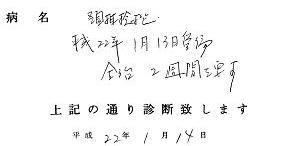 病名 頚椎捻挫
平成22年1月13日受傷
全治 2週間を要す
上記の通り診断致します
平成 22年 1月 14日